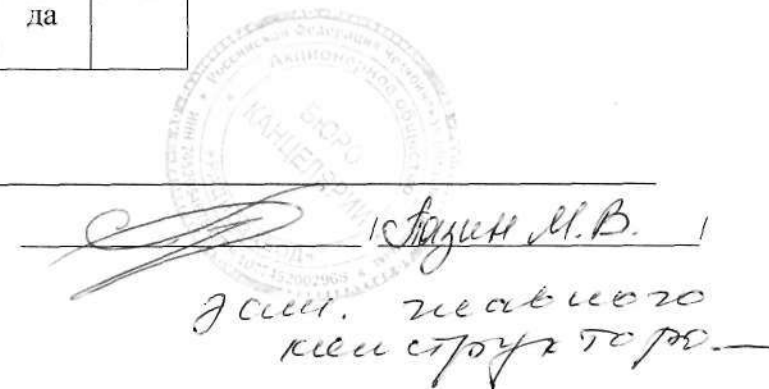 да
Российская Федерация
Акционерное общество
БЮРО
КАНЦЕЛЯРИИ
/ Лазин М.В. /
зам. главного
конструктора